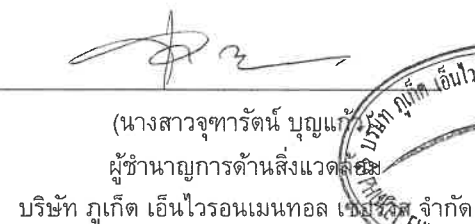 (นางสาวจุฑารัตน์ บุญแก้ว)
ผู้ชำนาญการด้านสิ่งแวดล้อม
บริษัท ภูเก็ต เอ็นไวรอนเมนทอล เซอร์วิส จำกัด
บริษัท ภูเก็ต เอ็นไว